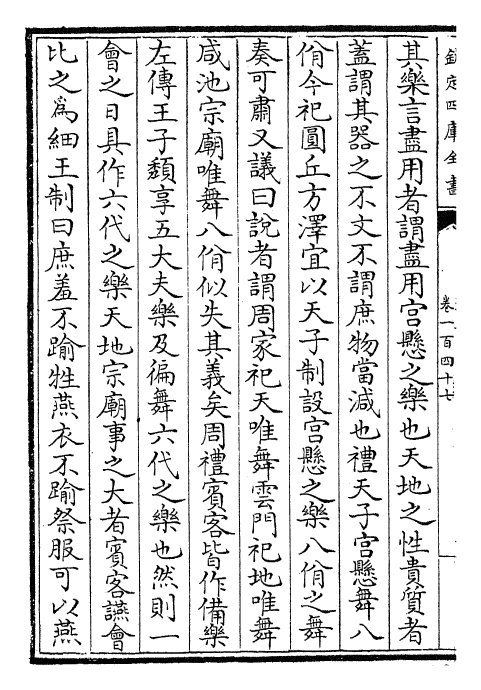 欽定四庫全書
卷一百四十七
其樂言盡用者謂盡用宫懸之樂也天地之性貴質者
蓋謂其器之不文不謂庶物當減也禮天子宫懸舞八
佾今祀圓丘方澤宜以天子制設宫懸之樂八佾之舞
奏可肅又議曰說者謂周家祀天唯舞雲門祀地唯舞
咸池宗廟唯舞八佾似失其義矣周禮賓客皆作備樂
左傳王子頽享五大夫樂及徧舞六代之樂也然則一
會之日具作六代之樂天地宗廟事之大者賓客讌會
比之為細王制曰庶羞不踰牲燕衣不踰祭服可以燕